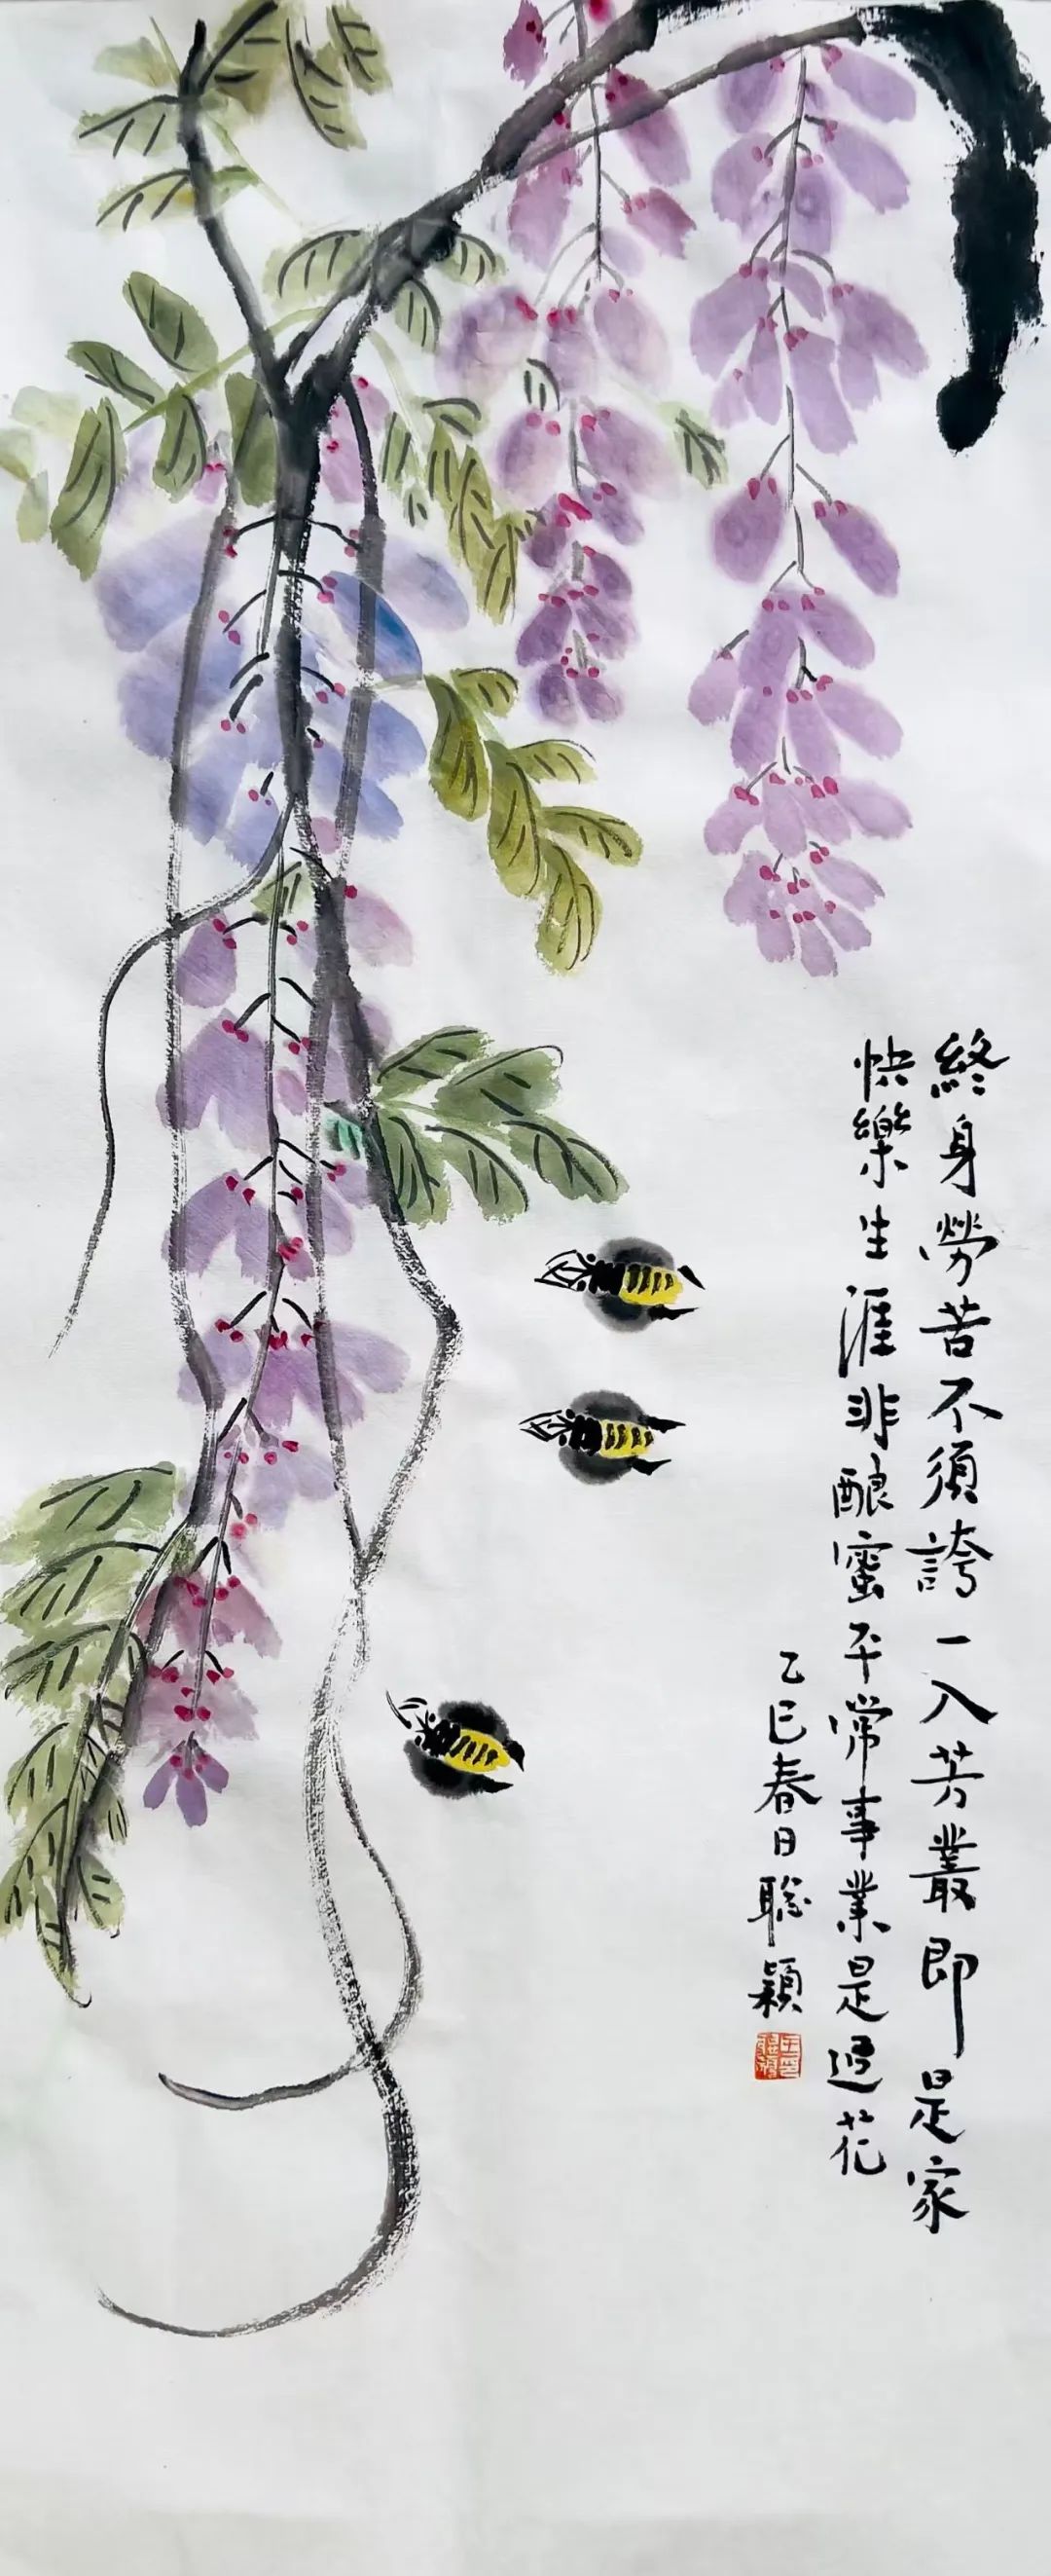 終身勞苦不須誇一入芳叢即是家
快樂生涯非酿蜜平常事業是過花
乙巳春日聪穎